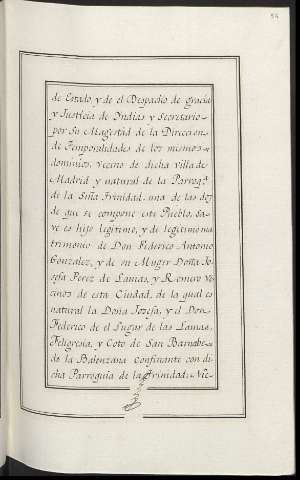 de Estado, y de el Despacho de gracia
y Justicia de Indias y Secretario
por Su Magestad de la Direccion
de Temporalidades de los mismos
dominios, vecino de dicha villa de
Madrid y natural de la Parroq.ª
de la SSma Trinidad, una de las dos
de que se compone este Pueblo, sa-
ve es hijo legitimo, y de legitimo ma
trimonio de Don Federico Antonio
Gonzalez, y de su Muger Doña Jo-
sefa Perez de Lamas, y Romero Ve
cinos de esta Ciudad, de la qual es
natural la Doña Josefa, y el Don
Federico de el Lugar de las Lamas,
Feligresia, y Coto de San Barnabe
de la Balenzana Confinante con di
cha Parroquia de la Trinidad: Nie-